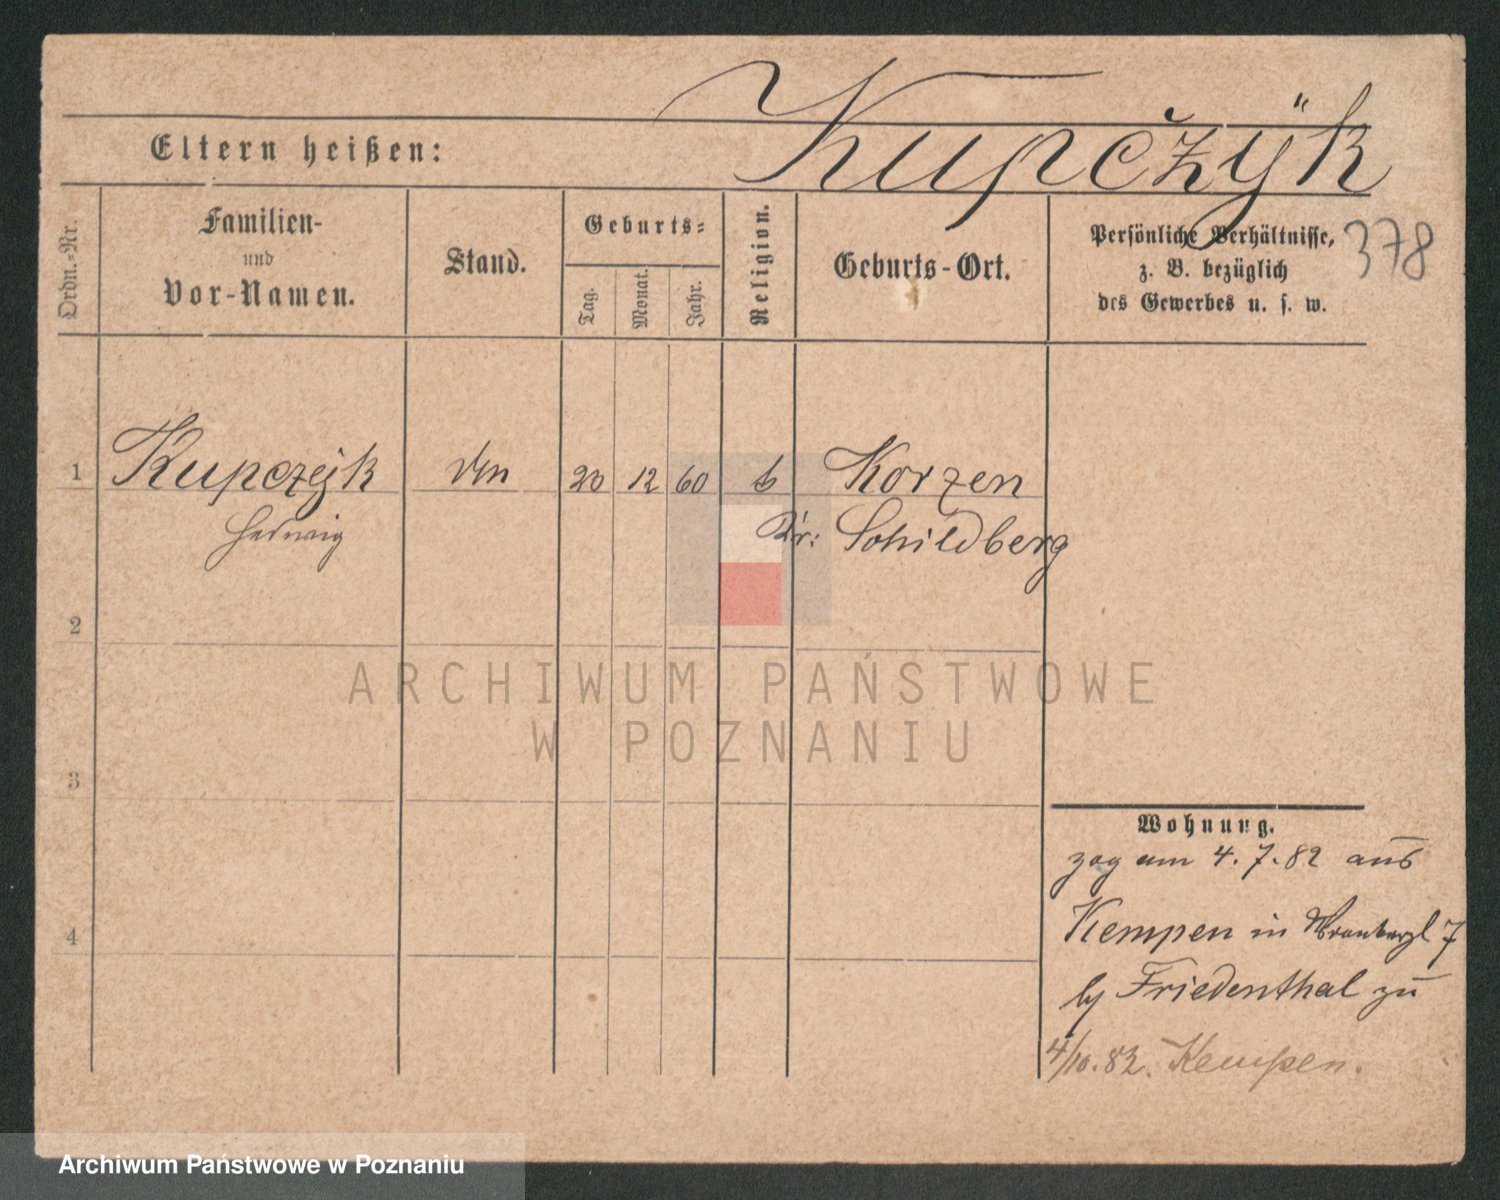 Kupčzÿk
Eltern heißen:
Ordn.-Nr.
Familien-
und
Vor-Namen.
Stand.
Geburts-
Tag.
Monat.
Jahr.
Religion.
Geburts-Ort.
Persönliche Verhältnisse,
z. B. bezüglich
des Gewerbes u. s. w.
378
1 Kupczÿk 20 12 60 Korzen
Hedwig Kr: Schildberg
2
3
4
Wohnung.
zog am 4. 7. 82 aus
Kempen in 7
by Friedenthal zu
4/10. 82. Kempen.
ARCHIWUM PAŃSTWOWE
W POZNANIU
Archiwum Państwowe w Poznaniu